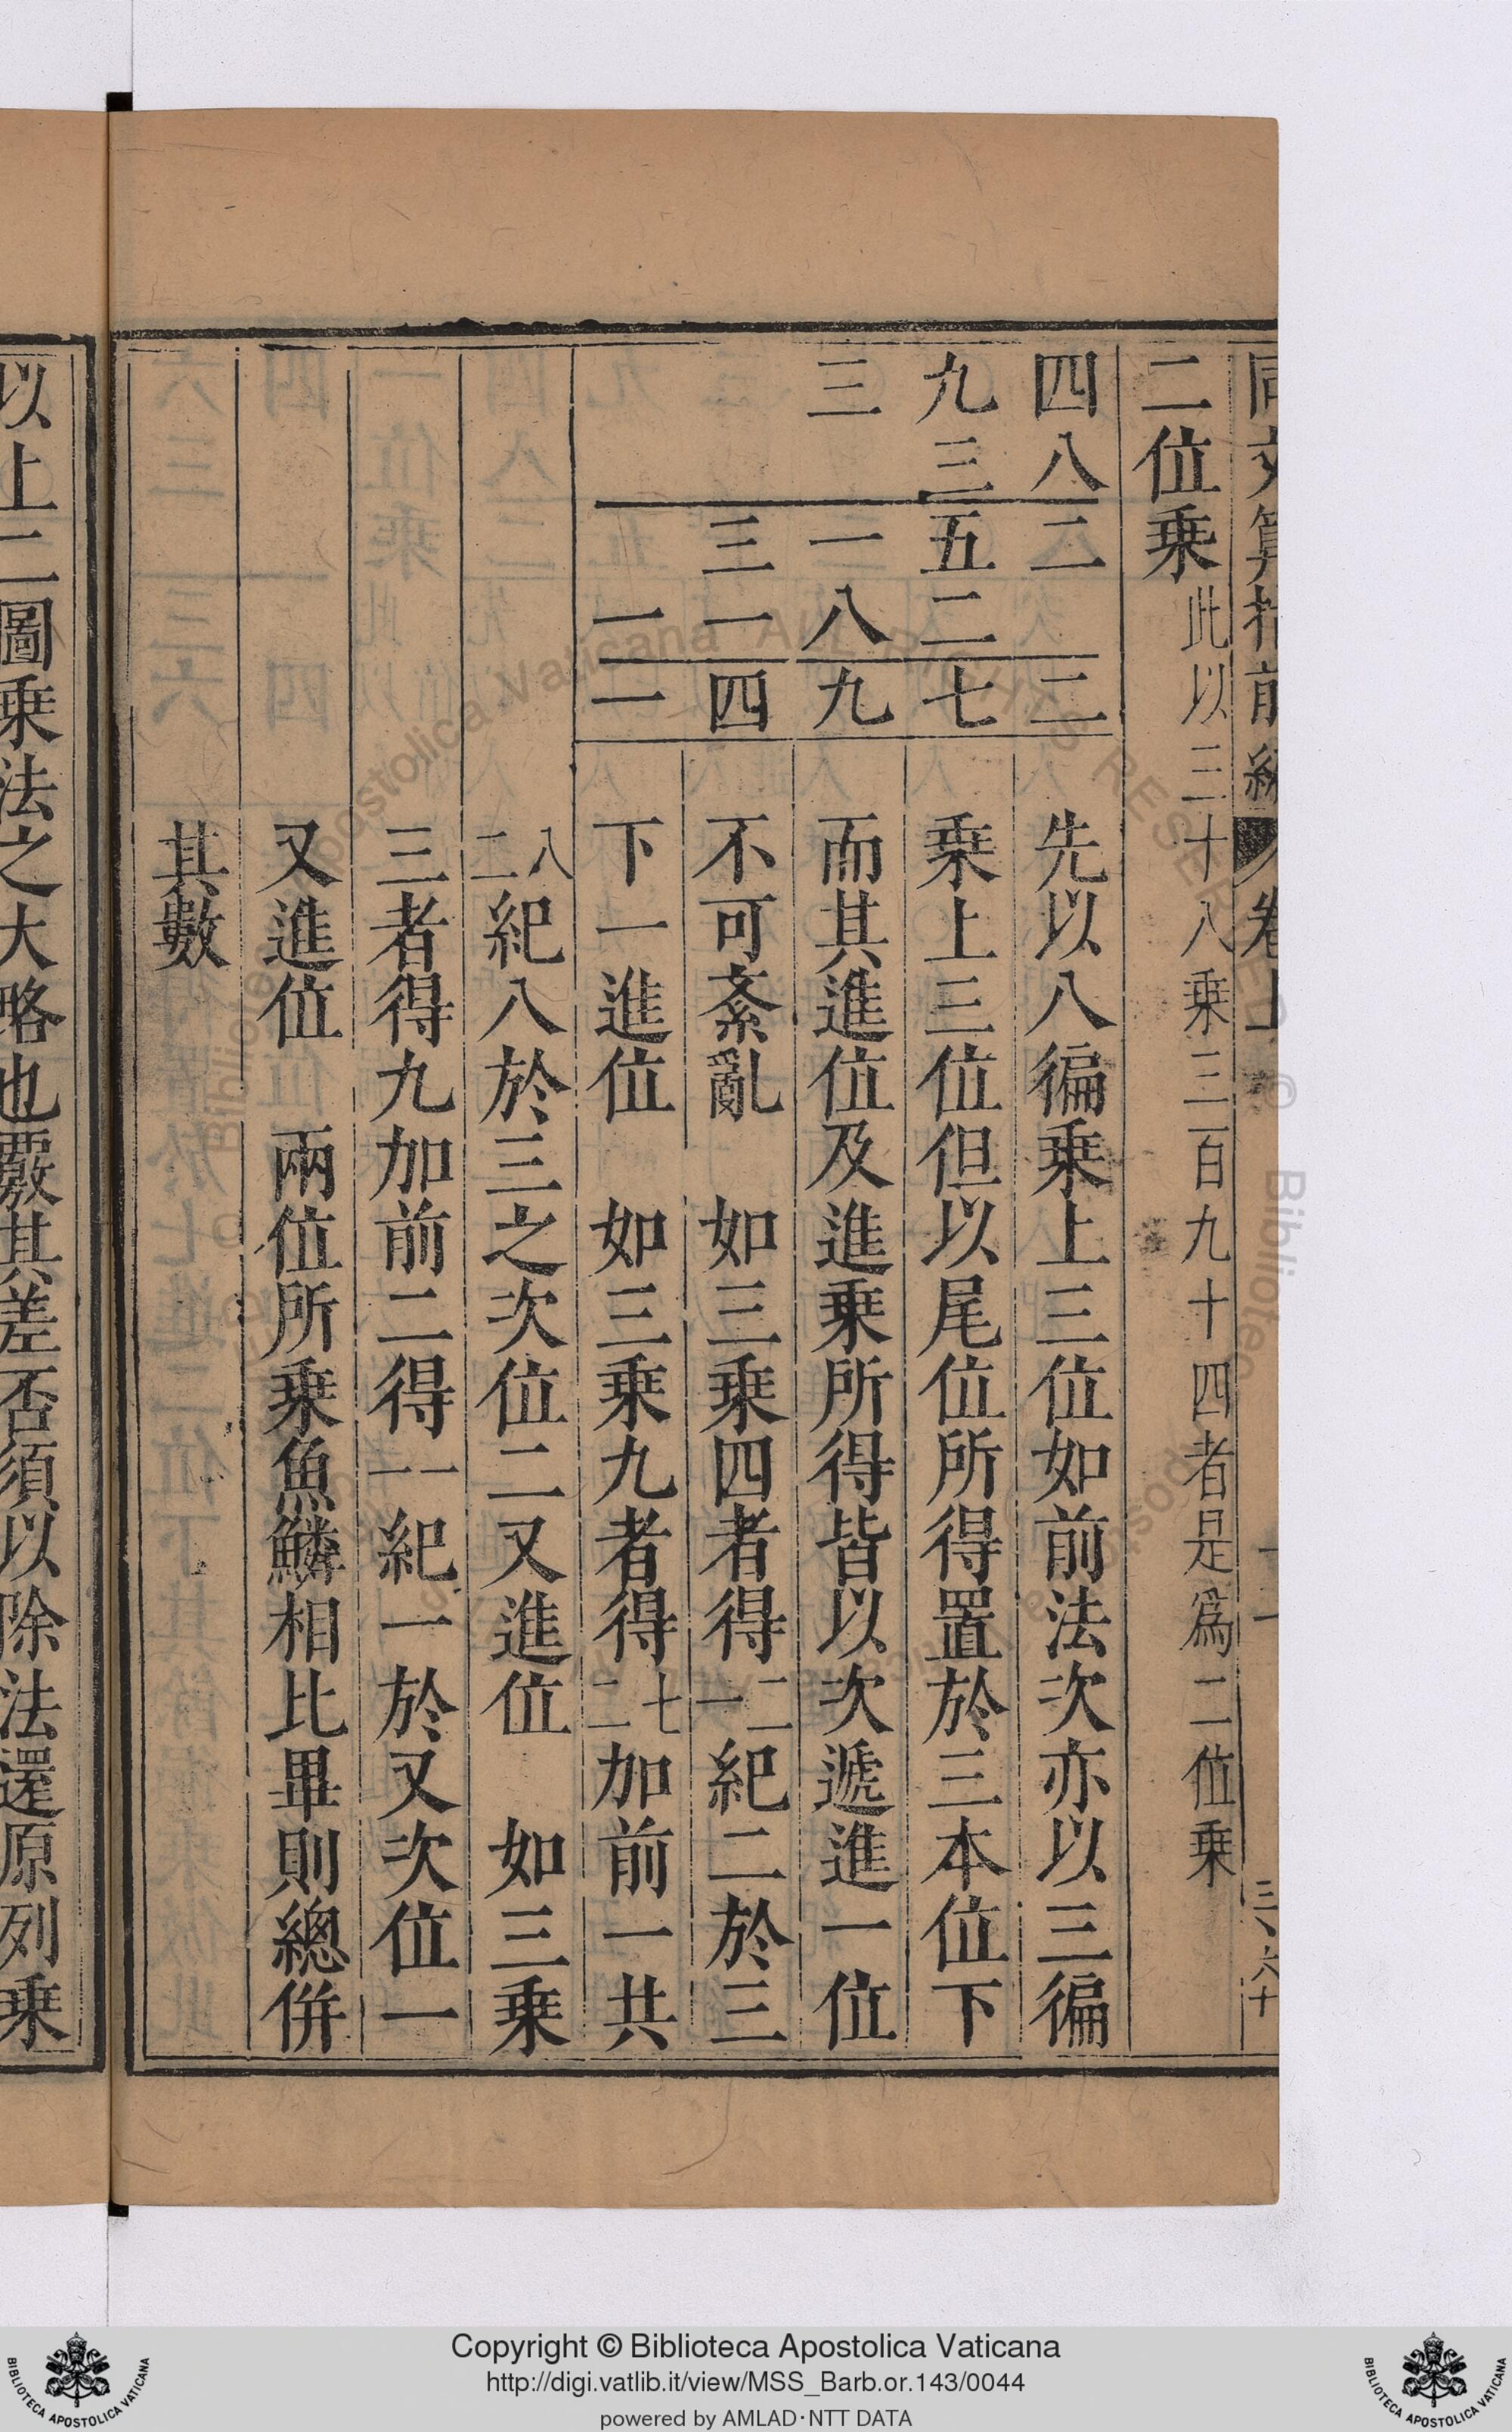 同文算指前編 卷上
二位乗 此以三十八乗三百九十四者是爲二位乗
四八二二 先以八徧乗上三位如前法次亦以三徧
九三五二七 乗上三位但以尾位所得置於三本位下
三一八九 而其進位及進乗所得皆以次遞進一位
三一四 不可紊亂 如三乗四者得一二紀二於三
一一 下一進位 如三乗九者得二七加前一共
二八紀八於三之次位二又進位 如三乗
三者得九加前二得一一紀一於又次位一
又進位 兩位所乗魚鱗相比畢則總併
其數
以上二圖乗法之大略也覈其差否須以除法還原列乗
Copyright © Biblioteca Apostolica Vaticana
http://digi.vatlib.it/view/MSS_Barb.or.143/0044
powered by AMLAD·NTT DATA
BIBLIOTECA APOSTOLICA VATICANA
BIBLIOTECA APOSTOLICA VATICANA